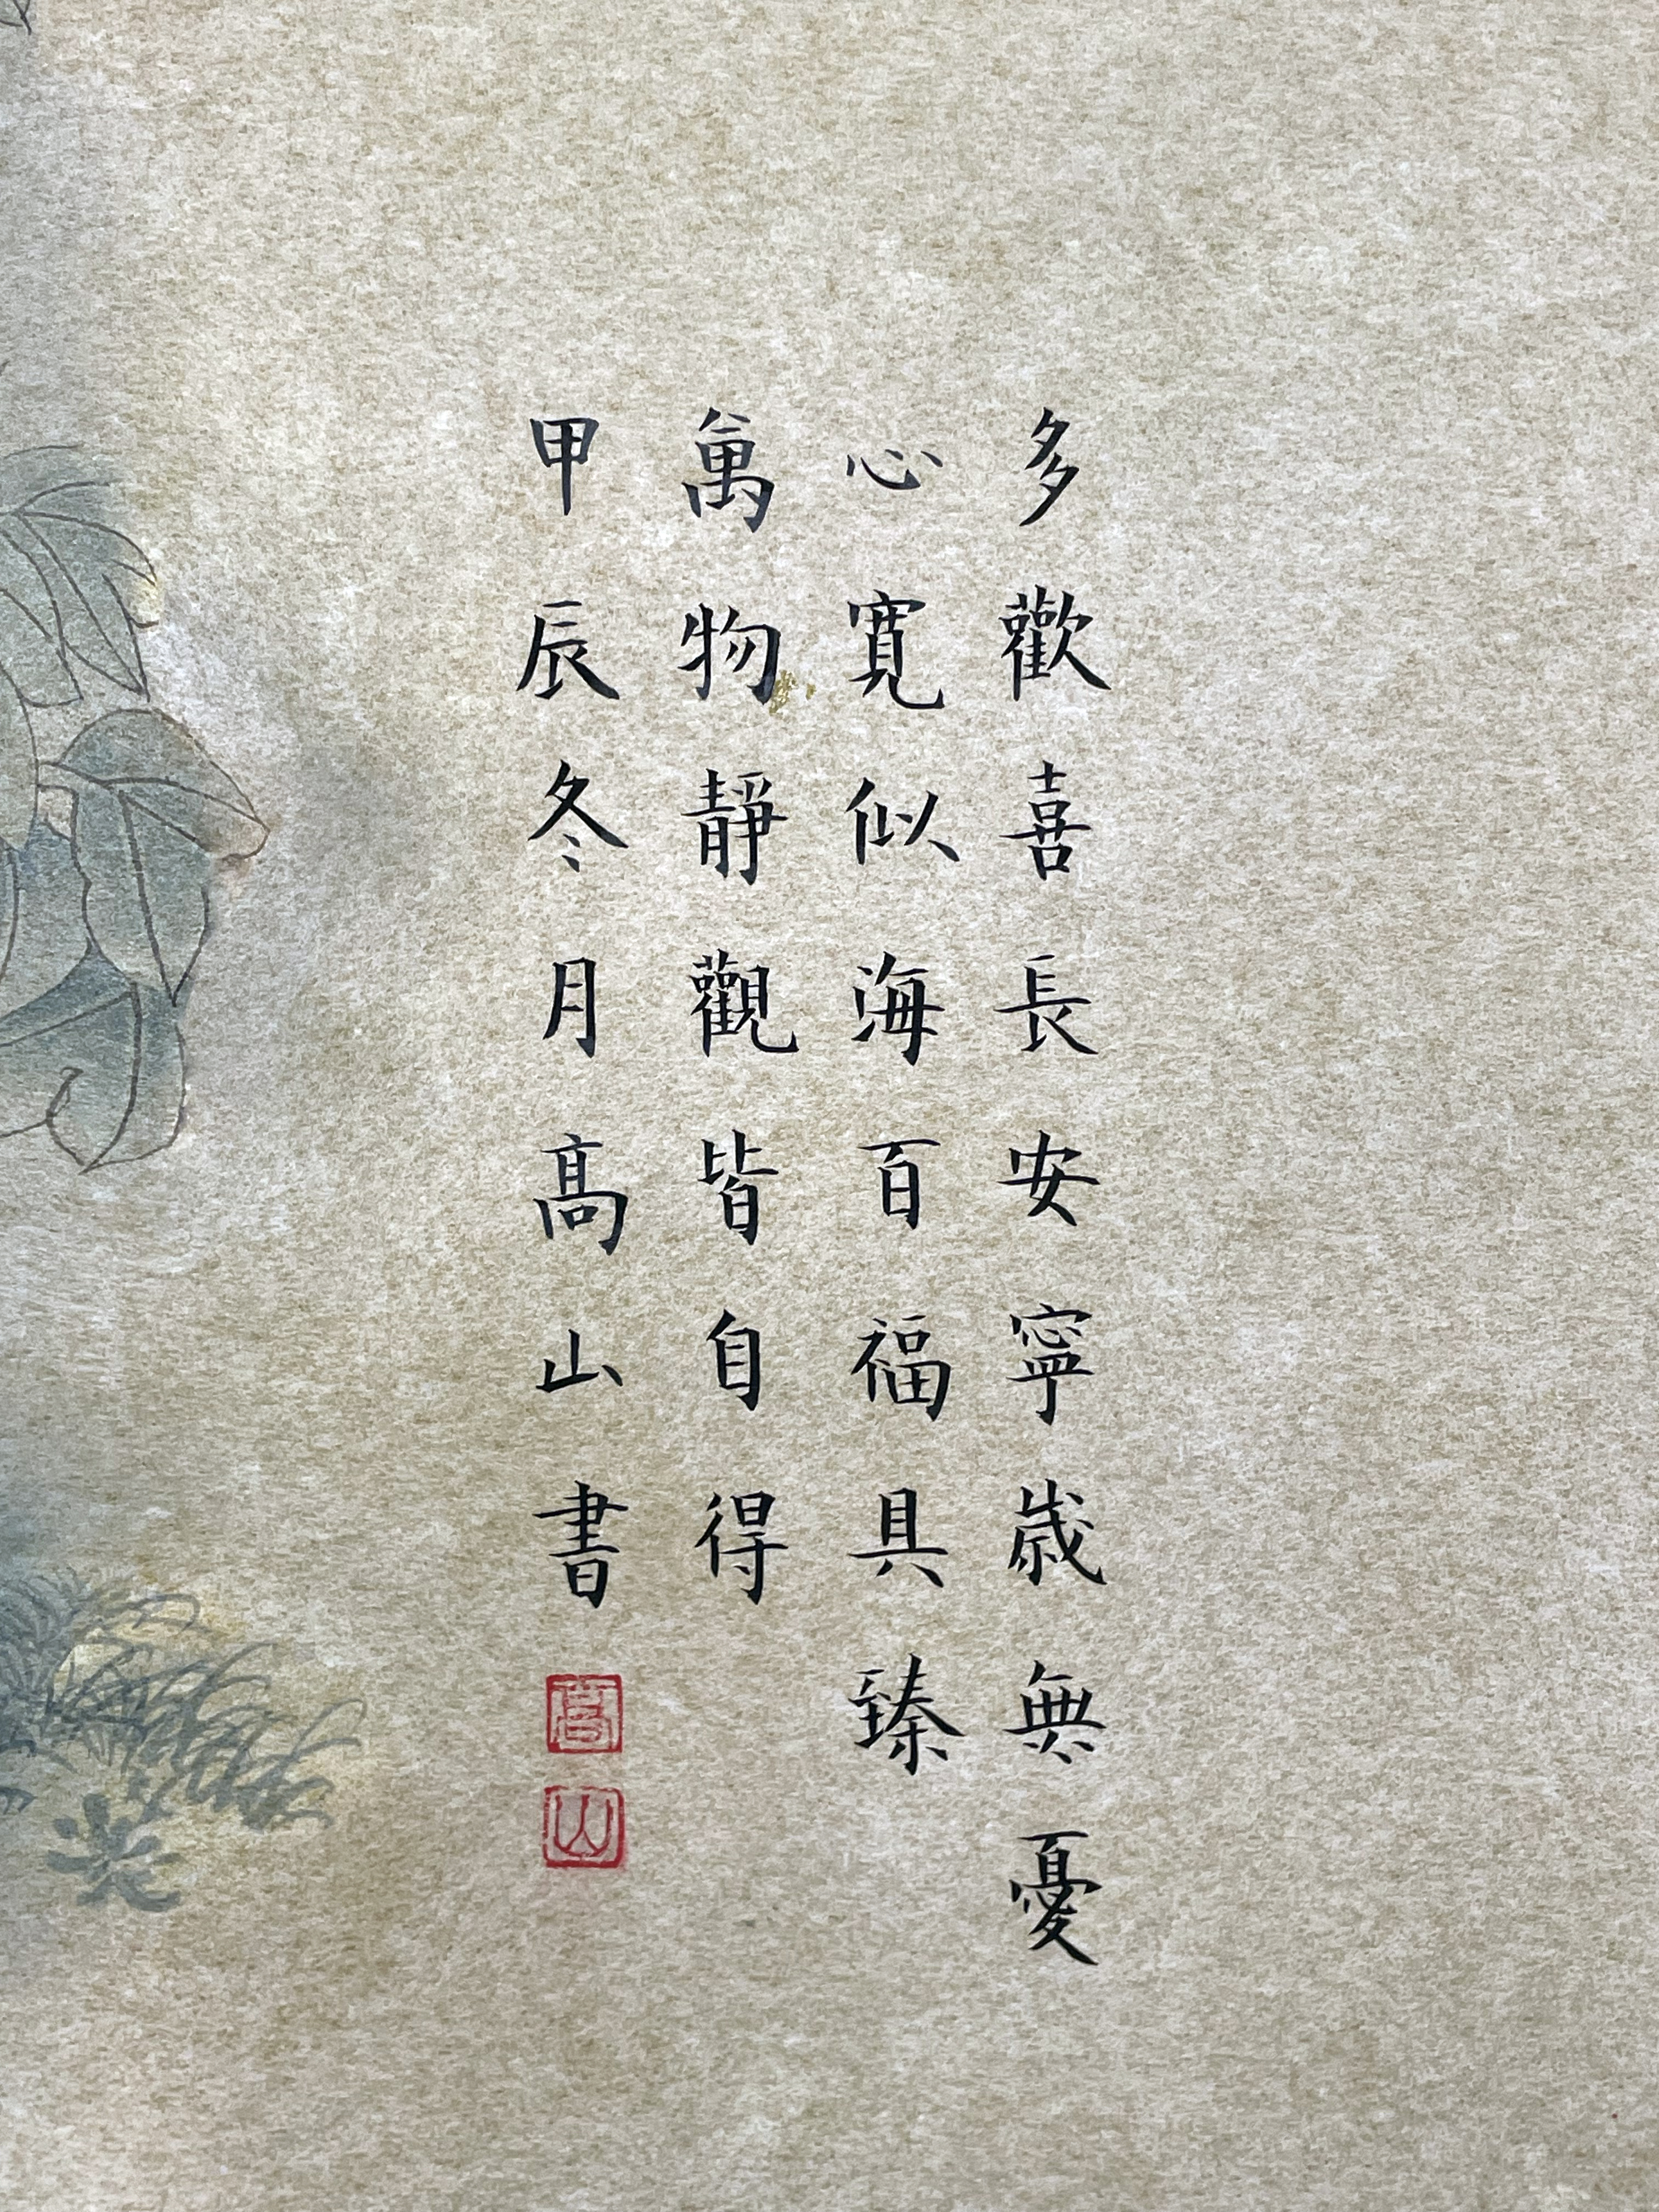 多歡喜長安寧歲無憂
心寬似海百福具臻
萬物靜觀皆自得
甲辰冬月高山書
高
山